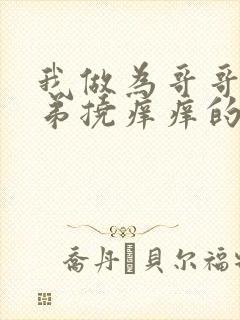 我做为哥哥
弟撓痒痒的
喬丹·貝尔福特